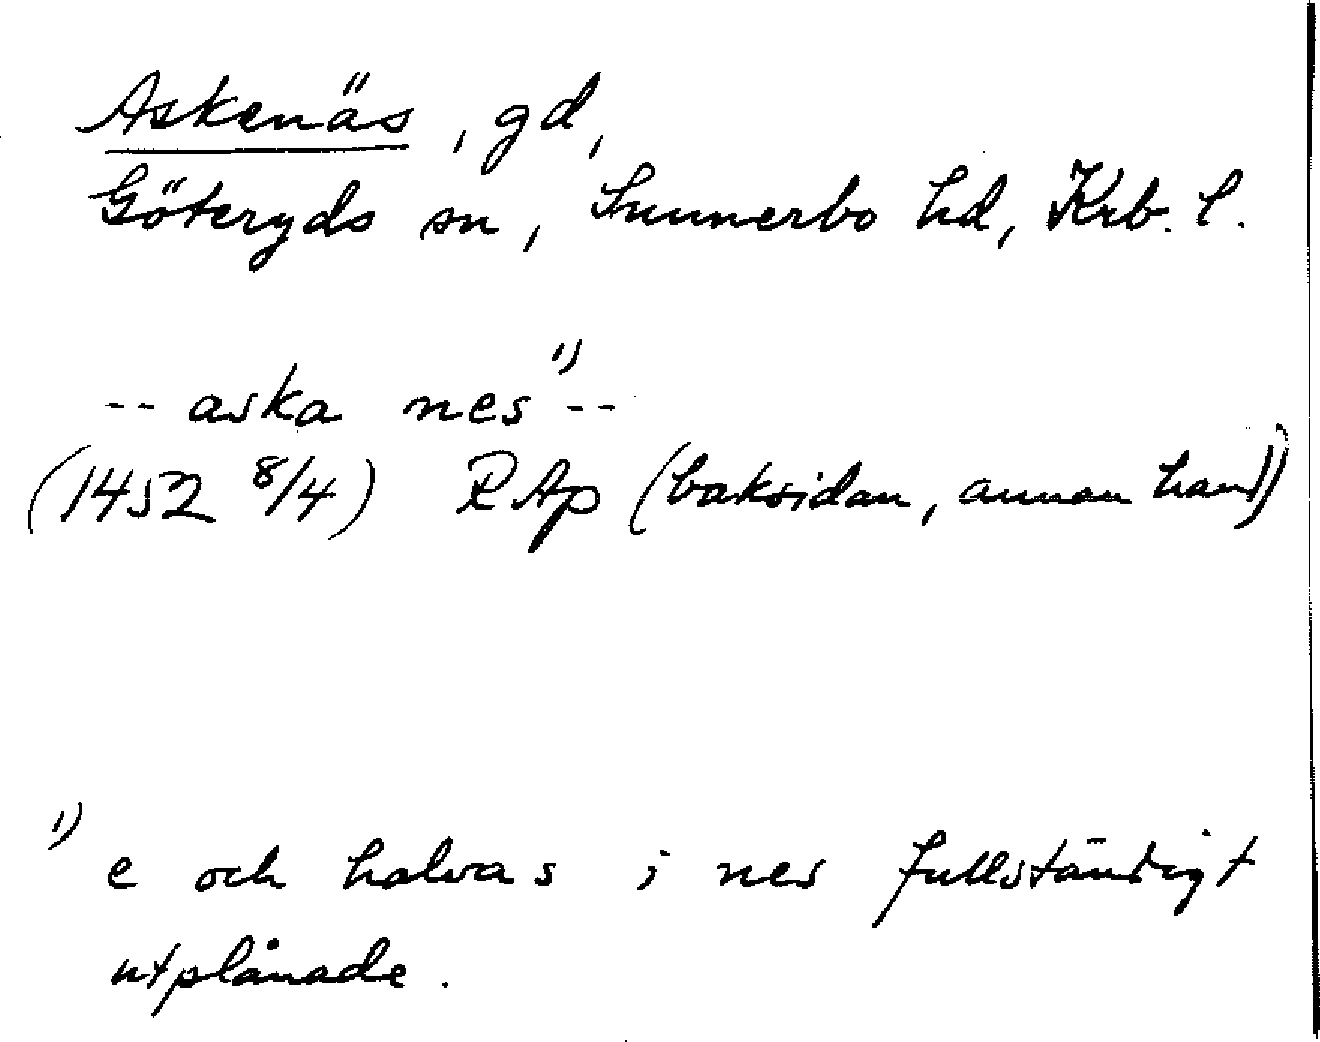 Askenäs, gd,
Göteryds sn, Sunnerbo hd, Krb. l.
-- aska nes 1) --
(1452 8/4) RAp (baksidan, annan hand)
1) e och halva s i nes fullständigt
utplånade.